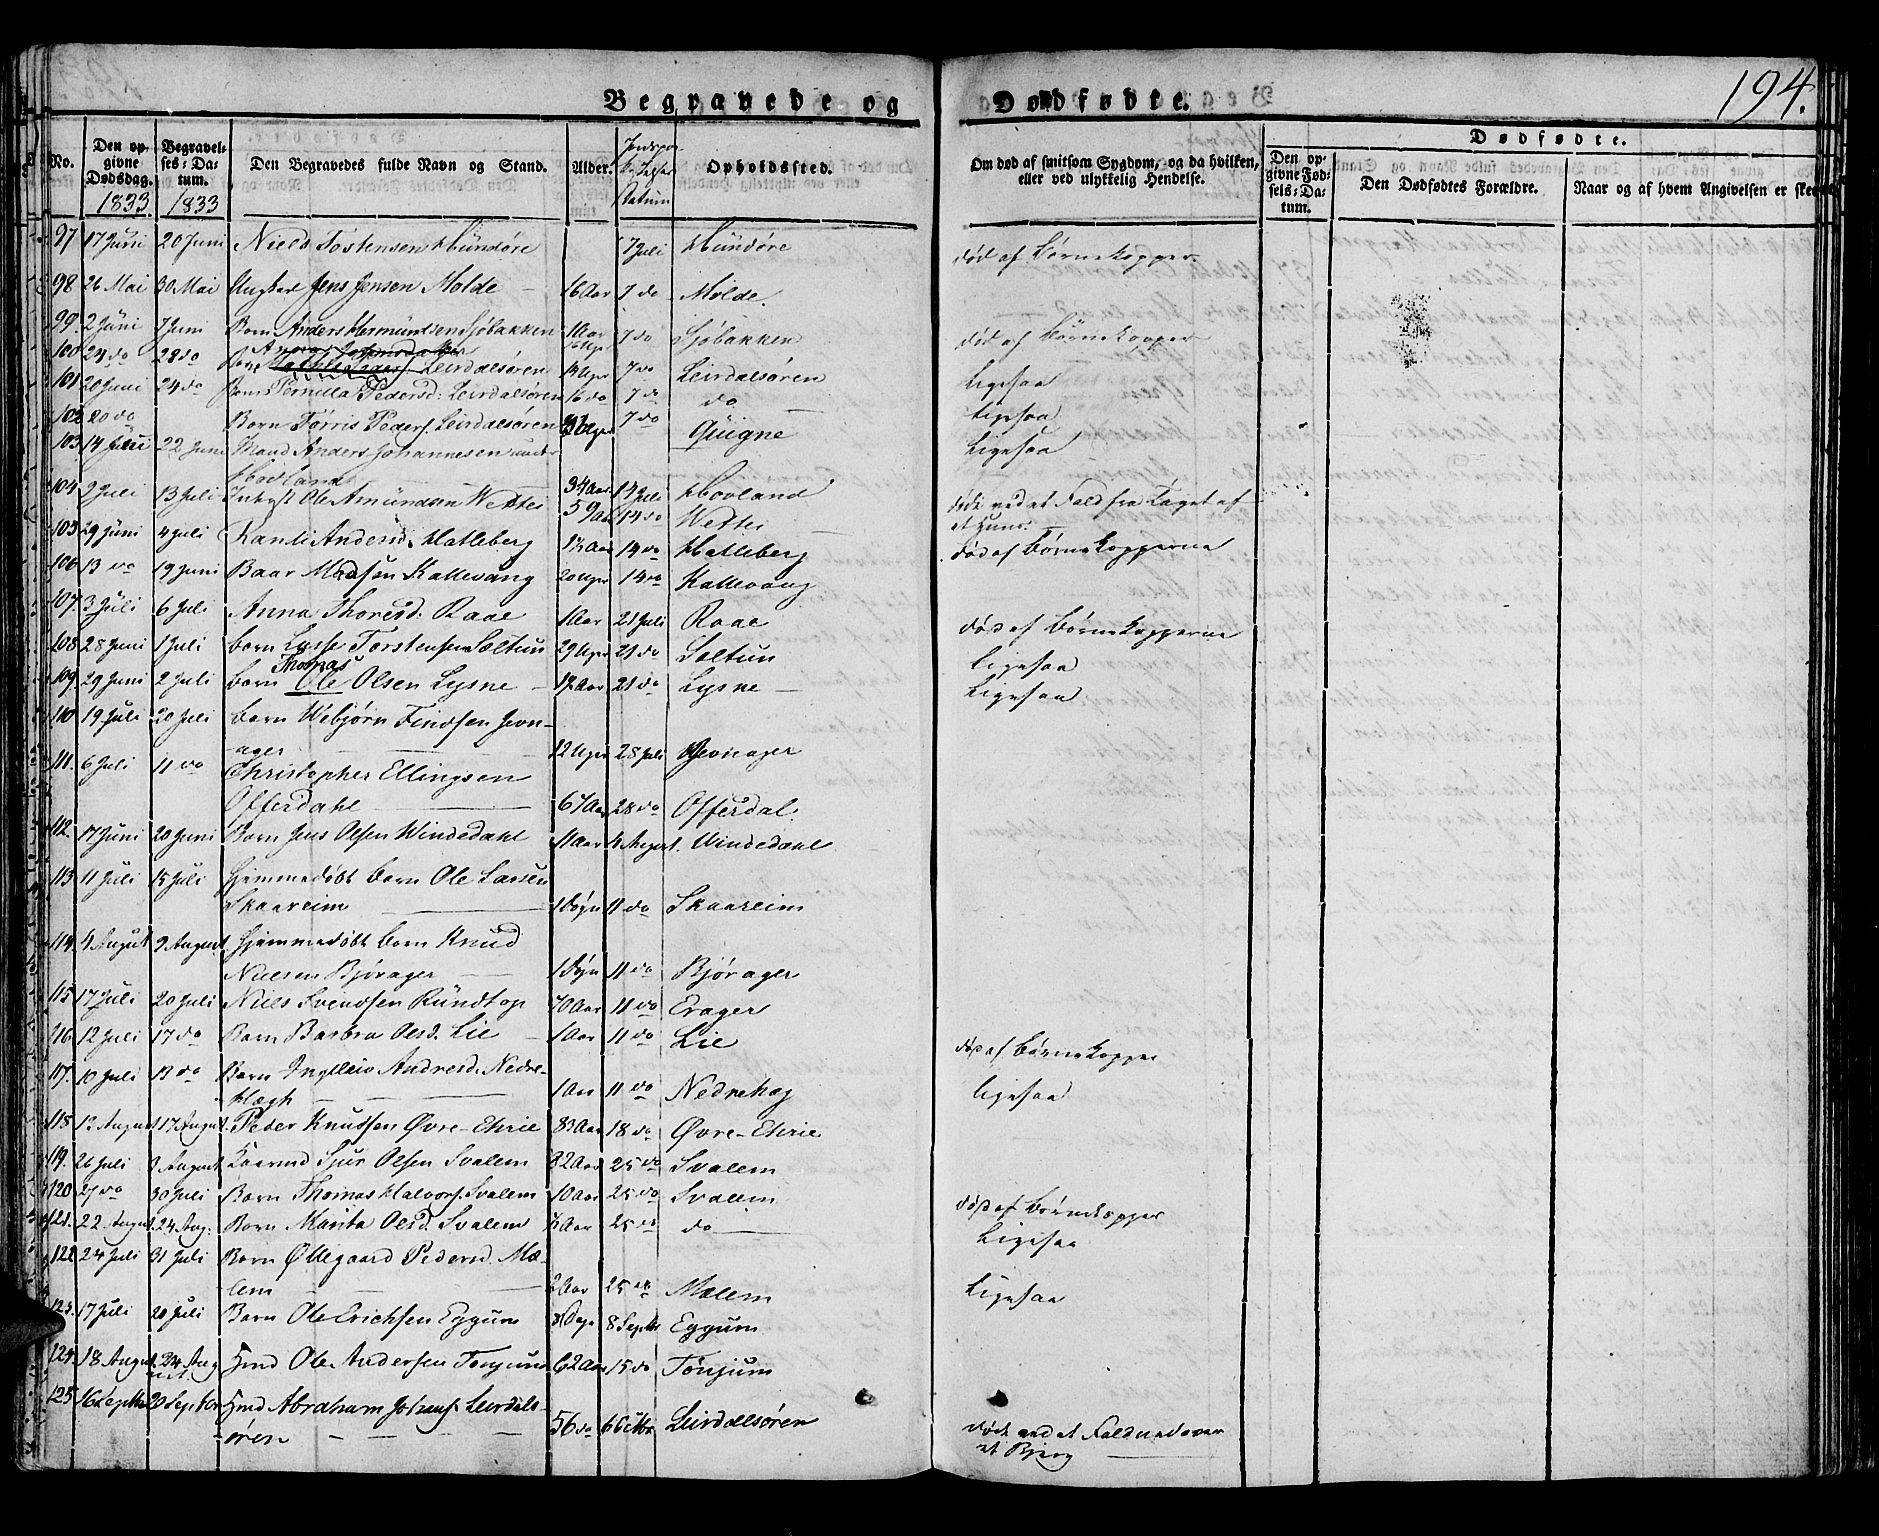 194.
Begravede og Dødfødte.
No. Den opgivne Dødsdag. 1833 Begravelses-Datum. 1833 Den Begravedes fulde Navn og Stand. Alder. Datum Opholdssted. Om død af smitsom Sygdom, og da hvilken, eller ved ulykkelig Hendelse.
Dødfødte.
Den opgivne Fødsels-Datum. Den Dødfødtes Forældre. Naar og af hvem Angivelsen er
97 17 Juni 20 Juni Niels Tostensen Hundøre 7 Juli Hundøre død af Børnekopper
98 26 Mai 30 Mai Ungkar Jens Jensen Molde 16 Aar 7 do Molde.
99. 2 Juni 7 Juni Barn Anders Hermundsen Sjøbakken 1 Aar 7 do Sjøbakken død af Børnekopper
100 24 do 28 do Barn Leirdalsøren 7 do Leirdalsøren Ligesaa
101 20 Juni 24 do Barn Pernilla Pedersd: Leirdalsøren 16 do 7 do do Ligesaa
102 20 do Barn Tørris Peders. Leirdalsøren 7 do Qvigne Ligesaa
103 14 Juni 22 Juni Mand Anders Johannesen
Hovland 34 Aar 14 Juli Hovland døde ved et Fald fra Taget af
et Huus.
104 2 Juli 13 Juli Inderst Ole Amundsen Wettei 59 Aar 14 do Wettei
105 29 Juni 4 Juli Randi Andersd. Hatleberg 1½ Aar 14 do Hatleberg død af Børnekopperne
106 13 do 19 Juni Baar Madsen Kallevang 20 Uger 14 do Kallevang
107. 3 Juli 6 Juli Anna Thoresd. Raae 1 Aar 21 Juli Raae død af Børnekopperne
108 28 Juni 1 Juli Barn Lasse Torstensen Soltun 29 Uger 21 do Soltun Ligesaa
Thomas
109. 29 Juni 2 Juli Barn Ole Olsen Lysne 12 Aar 21 do Lysne Ligesaa
110 19 Juli 20 Juli Barn Webjørn Findsen Jevn-
ager 12 Uger 28 Juli Jevnager
111. 6 Juli 11 do Christopher Ellingsen
Offerdahl 67 Aar 28 do Offerdal
112. 17 Juni 20 Juni Barn Jens Olsen Windedahl 1 Aar 4 August. Windedahl
113 11 Juli 15 Juli Hjemmedøbt Barn Ole Larsen
Skaareim 1 Døgn 11 do Skaareim
114. 4 August 9 August Hjemmedøbt Barn Knud
Nielsen Bjørager 1 Døgn 11 do Bjørager
115 17 Juli 20 Juli Niels Svendsen Rundtop 70 Aar 11 do Erager
116. 12 Juli 17 do Barn Barbra Olsd. Lie 1 Aar 11 do Lie død af Børnekopper
117. 10 Juli 13 do Barn Ingeleiv Andresd. Nedre-
Hægh 1 Aar 11 do Nedrehæg Ligesaa
118 13 August 17 August. Peder Knudsen Øvre-Ehrie 83 Aar 18 do Øvre-Ehrie
119. 26 Juli 3 August Kaarmd Sjur Olsen Svalem 82 Aar 25 do Svalem
120 27 do 30 Juli Barn Thomas Halvors. Svalem 10 Aar 25 do Svalem død af Børnekopper
121. 22 August 24 Aug. Barn Marita Olsd. Svalem Aar 25 do do Ligesaa
122 24 Juli 31 Juli Barn Øllegaard Pedersd. Mæ-
lem 2 Aar 25 do Mælem Ligesaa
123. 17 Juli 20 Juli Barn Ole Erichsen Eggum 8 Dage 8 Septbr Eggum
124. 18 August 24 Aug Hmd Ole Andersen Tonjum 62 Aar 15 do Tønjum
125. 16 Septbr 20 Septbr Hmd Abraham Johans. Leirdals-
øren 56 do 6 Octbr Leirdalsøren døde ved et Fald ned over
et Bjerg